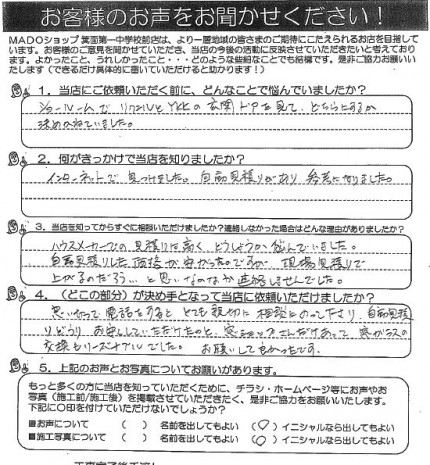 お客様のお声をお聞かせください！
MADOショップ 箕面第一中学校前店は、より一層地域の皆さまのご期待にこたえられるお店を目指しています。
お客様のご意見を聞かせていただき、当店の今後の活動に反映させていただきたいと考えております。
よかったこと、うれしかったこと・・・どのような些細なことでも結構です。是非ご協力お願いいたします（できるだけ具体的に書いていただけると助かります！）
1. 当店にご依頼いただく前に、どんなことで悩んでいましたか？
ショールームで リクシルとYKKの玄関ドアを見て、どちらにするか
決めかねていました。
2. 何がきっかけで当店を知りましたか？
インターネットで 見つけました。自動見積りがあり 参考になりました。
3. 当店を知ってからすぐに相談いただけましたか？連絡しなかった場合はどんな理由がありましたか？
ハウスメーカーの見積りは高く、どうしようか 悩んでいました。
自動見積りした価格が安かったのですが 現場見積りで
上がるのだろう…と思い なかなか連絡しませんでした。
4. （どこの部分）が決め手となって当店に依頼いただけましたか？
思いきって 電話をすると とても親切に 相談にのって下さり、自動見積
りどうり お安くしていただけたのと、窓ショップさんだけあって 窓ガラスの
交換もリーズナブルでした。 お願いしてよかったです。
5. 上記のお声とお写真についてお願いがあります。
もっと多くの方に当店を知っていただくために、チラシ・ホームページ等にお声やお
写真（施工前/施工後）を掲載させていただきたく、是非ご協力をお願いいたします。
下記に○印を付けていただけないでしょうか？
■お声について （ ） 名前を出してもよい （○） イニシャルなら出してもよい
■施工写真について （ ） 名前を出してもよい （○） イニシャルなら出してもよい